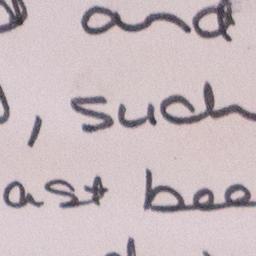 and
, such
ast bee